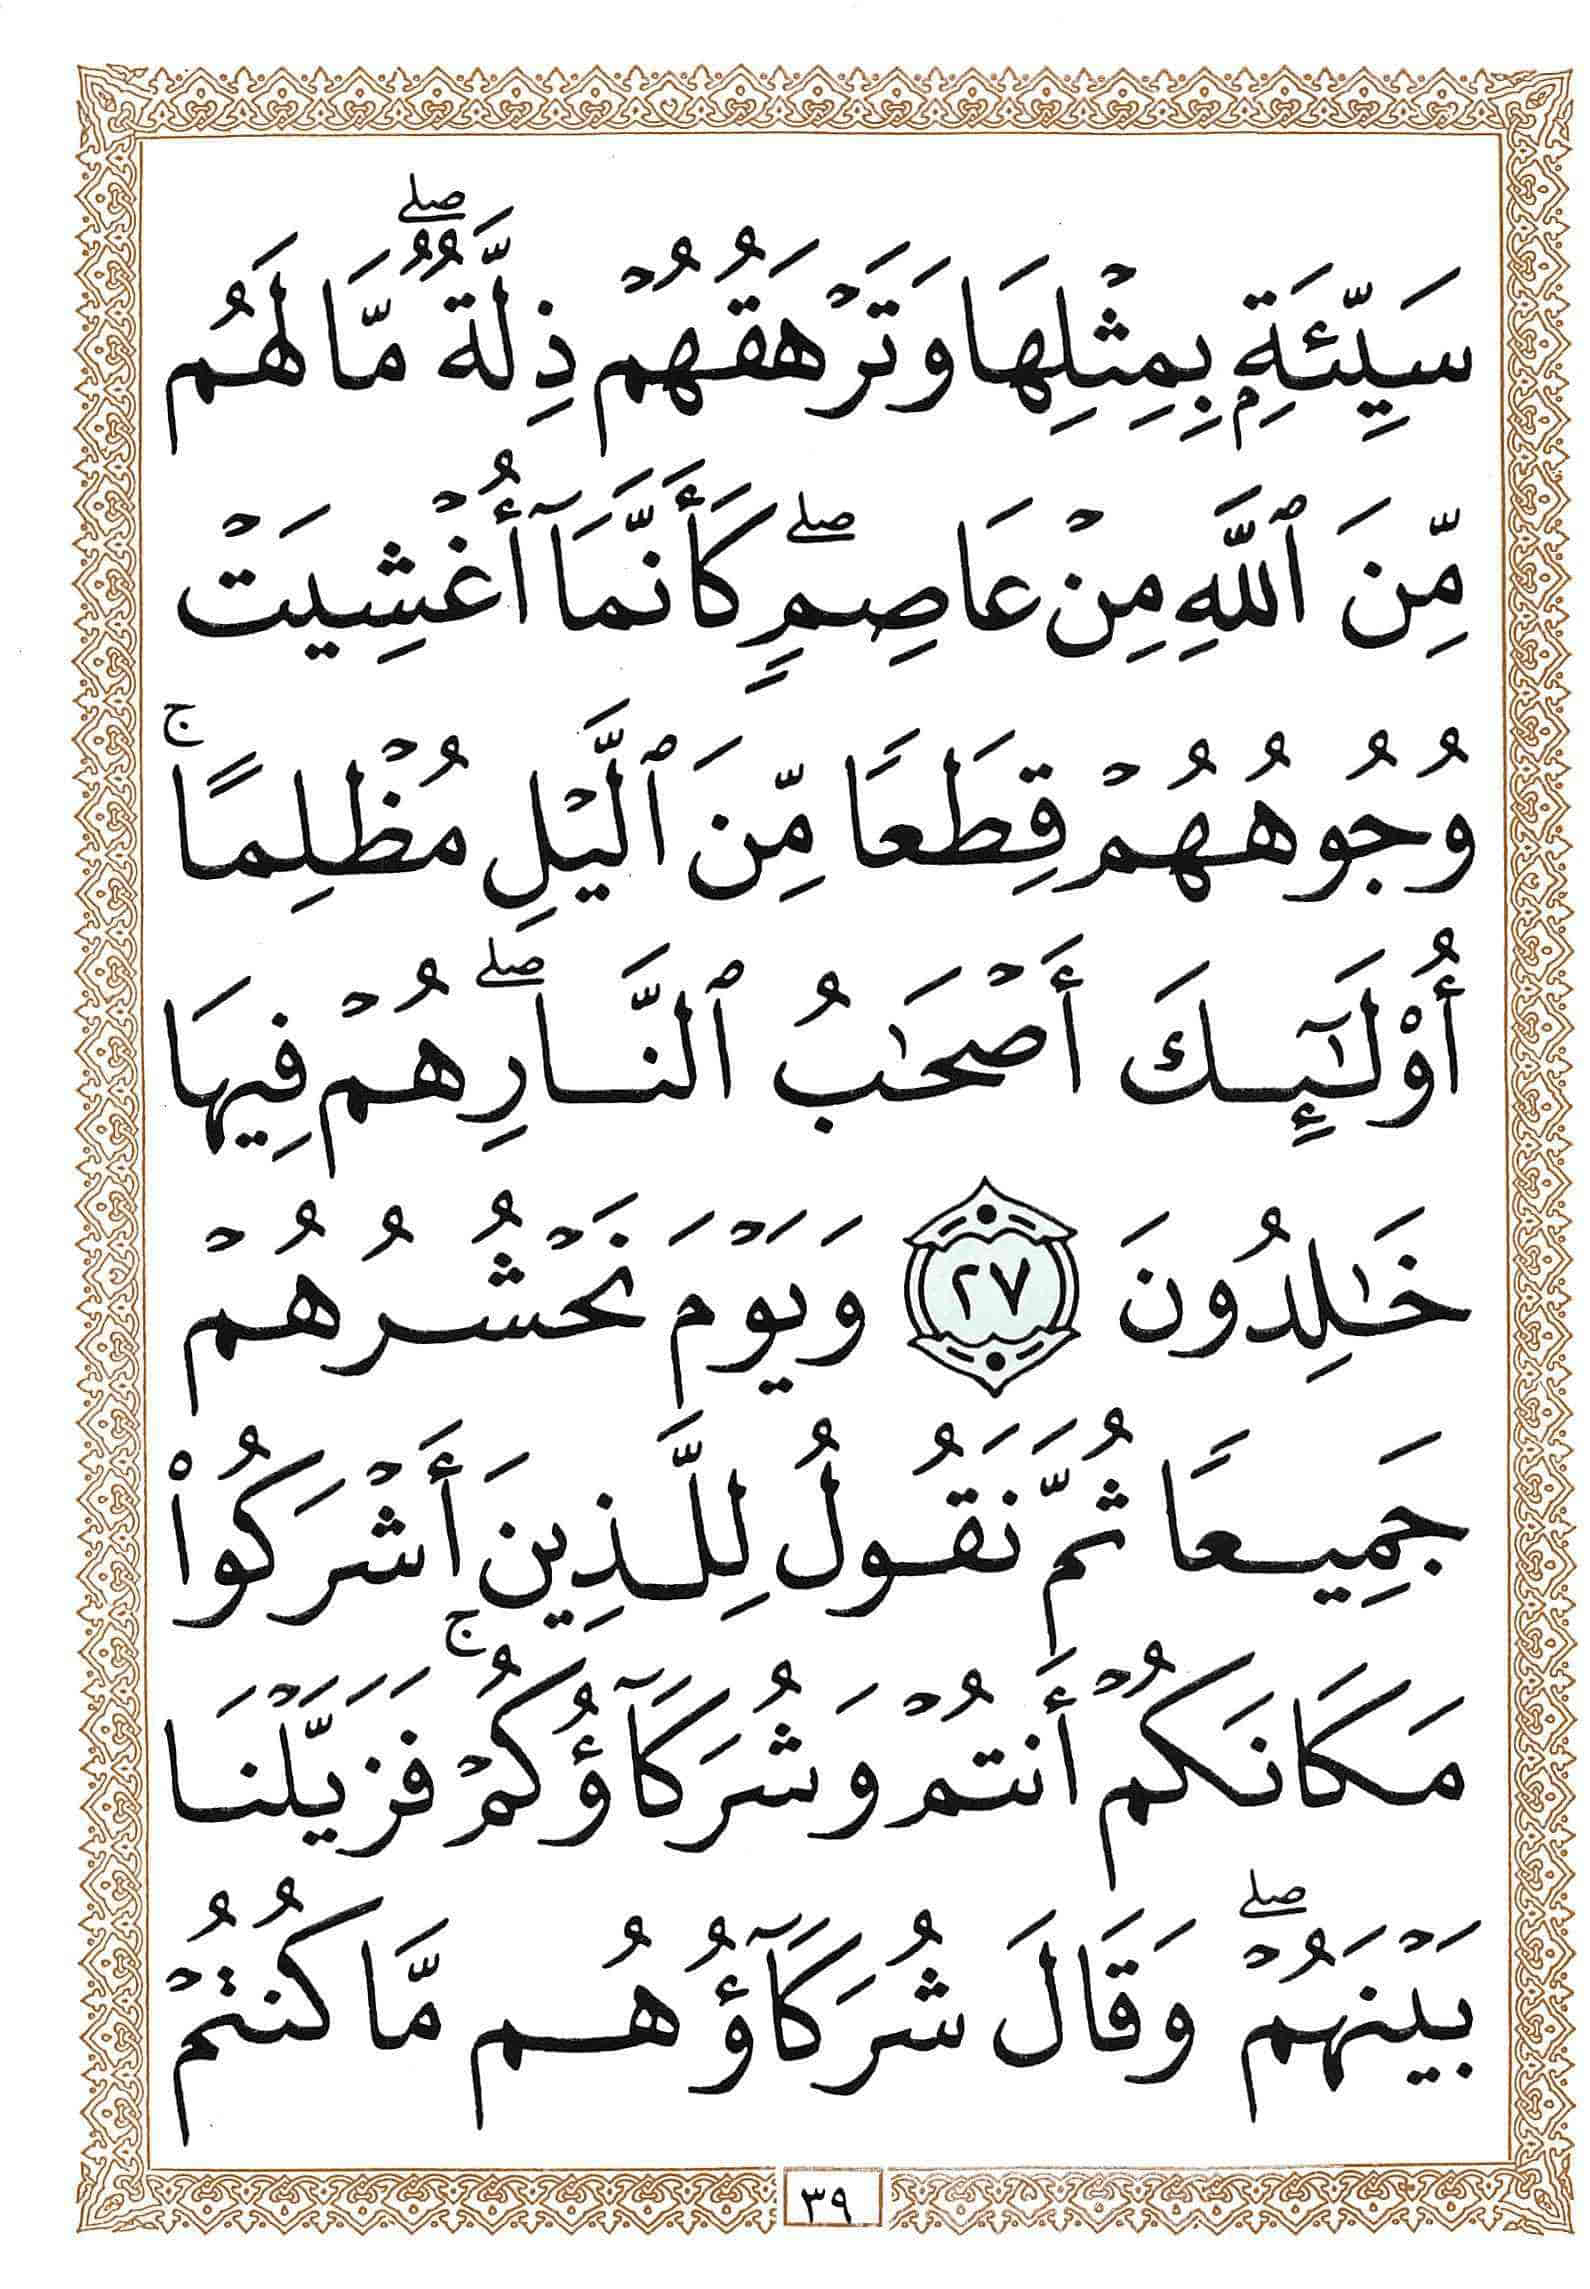 سَيِّئَةِۭ بِمِثْلِهَا وَتَرْهَقُهُمْ ذِلَّةٌۖ مَّا لَهُم
مِّنَ ٱللَّهِ مِنْ عَاصِمٍۖ كَأَنَّمَآ أُغْشِيَتْ
وُجُوهُهُمْ قِطَعًا مِّنَ ٱلَّيْلِ مُظْلِمًاۚ
أُو۟لَـٰٓئِكَ أَصْحَـٰبُ ٱلنَّارِۖ هُمْ فِيهَا
خَـٰلِدُونَ ٢٧ وَيَوْمَ نَحْشُرُهُمْ
جَمِيعًا ثُمَّ نَقُولُ لِلَّذِينَ أَشْرَكُوا۟
مَكَانَكُمْ أَنتُمْ وَشُرَكَآؤُكُمْۚ فَزَيَّلْنَا
بَيْنَهُمْۖ وَقَالَ شُرَكَآؤُهُم مَّا كُنتُمْ
٣٩